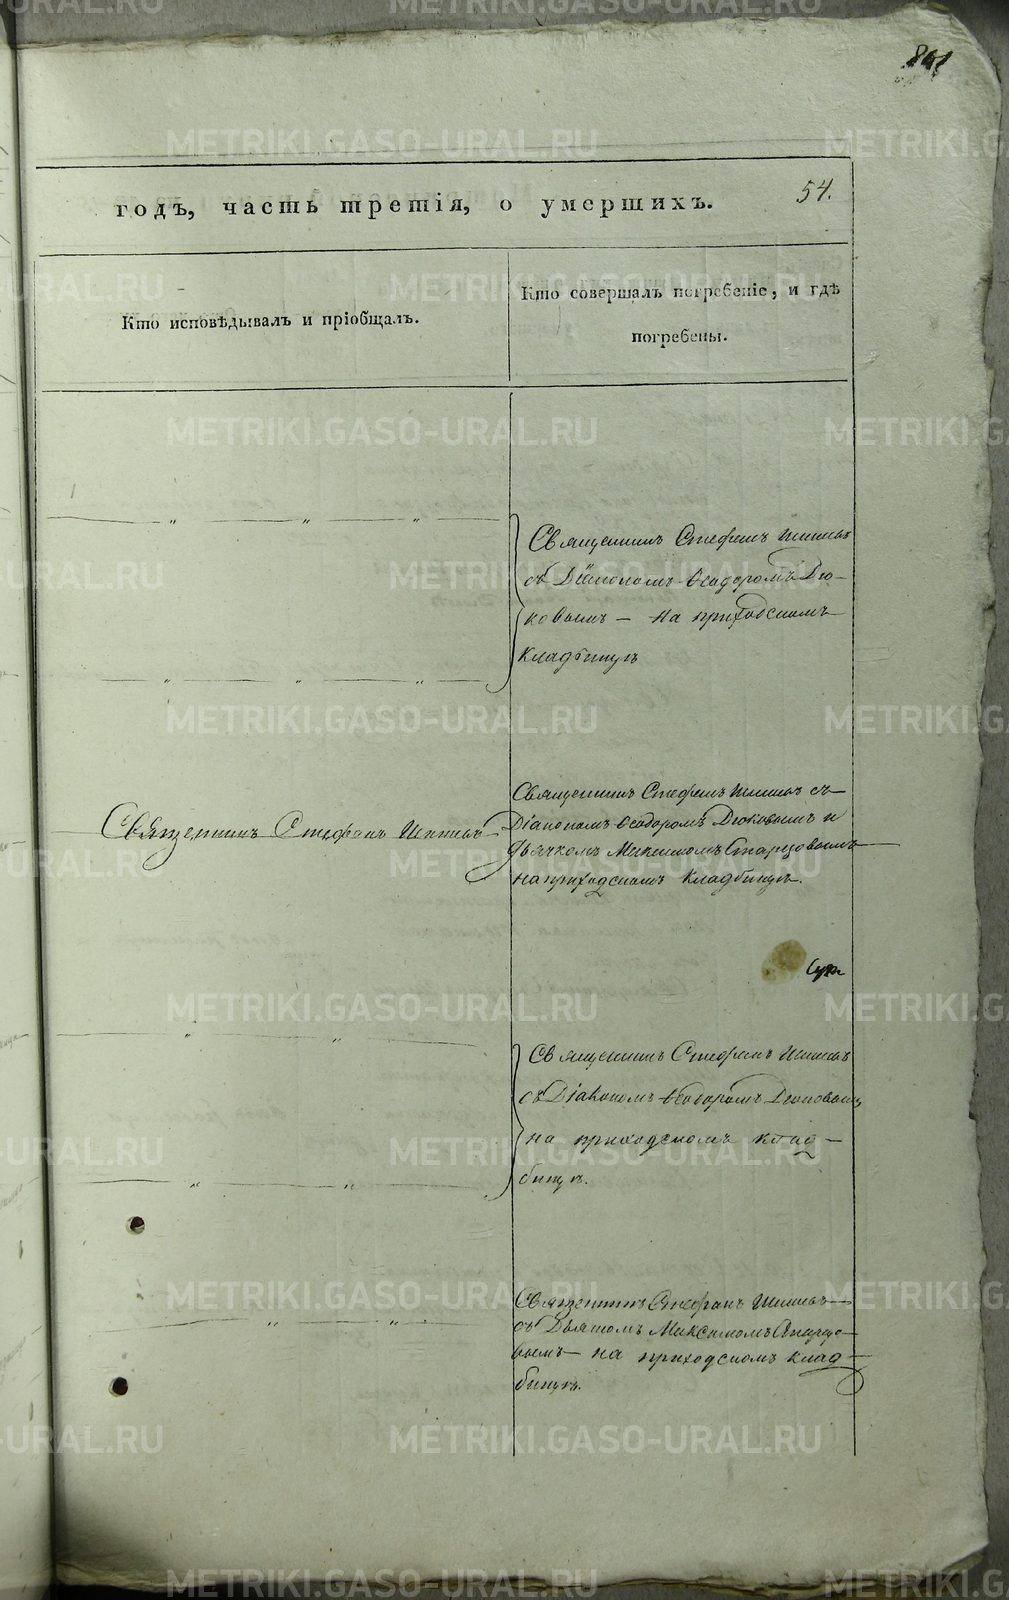 54.
годъ, часть третія, о умершихъ.
Кто исповѣдывалъ и пріобщалъ.
Кто совершалъ погребеніе, и гдѣ
погребены.
Священникъ Стефанъ
съ Діакономъ Ѳеодоромъ Дю-
ковымъ — на приходскомъ
кладбищѣ
Священникъ Стефанъ
Священникъ Стефанъ съ
Діакономъ Ѳеодоромъ Дюковымъ и
дьячкомъ Максимомъ Старцовымъ
на приходскомъ кладбищѣ.
Священникъ Стефанъ
съ Діакономъ Ѳеодоромъ Дюковымъ
на приходскомъ клад-
бищѣ.
Священникъ Стефанъ
съ Дьячкомъ Максимомъ Старцо-
вымъ на приходскомъ клад-
бищѣ.
METRIKI.GASO-URAL.RU